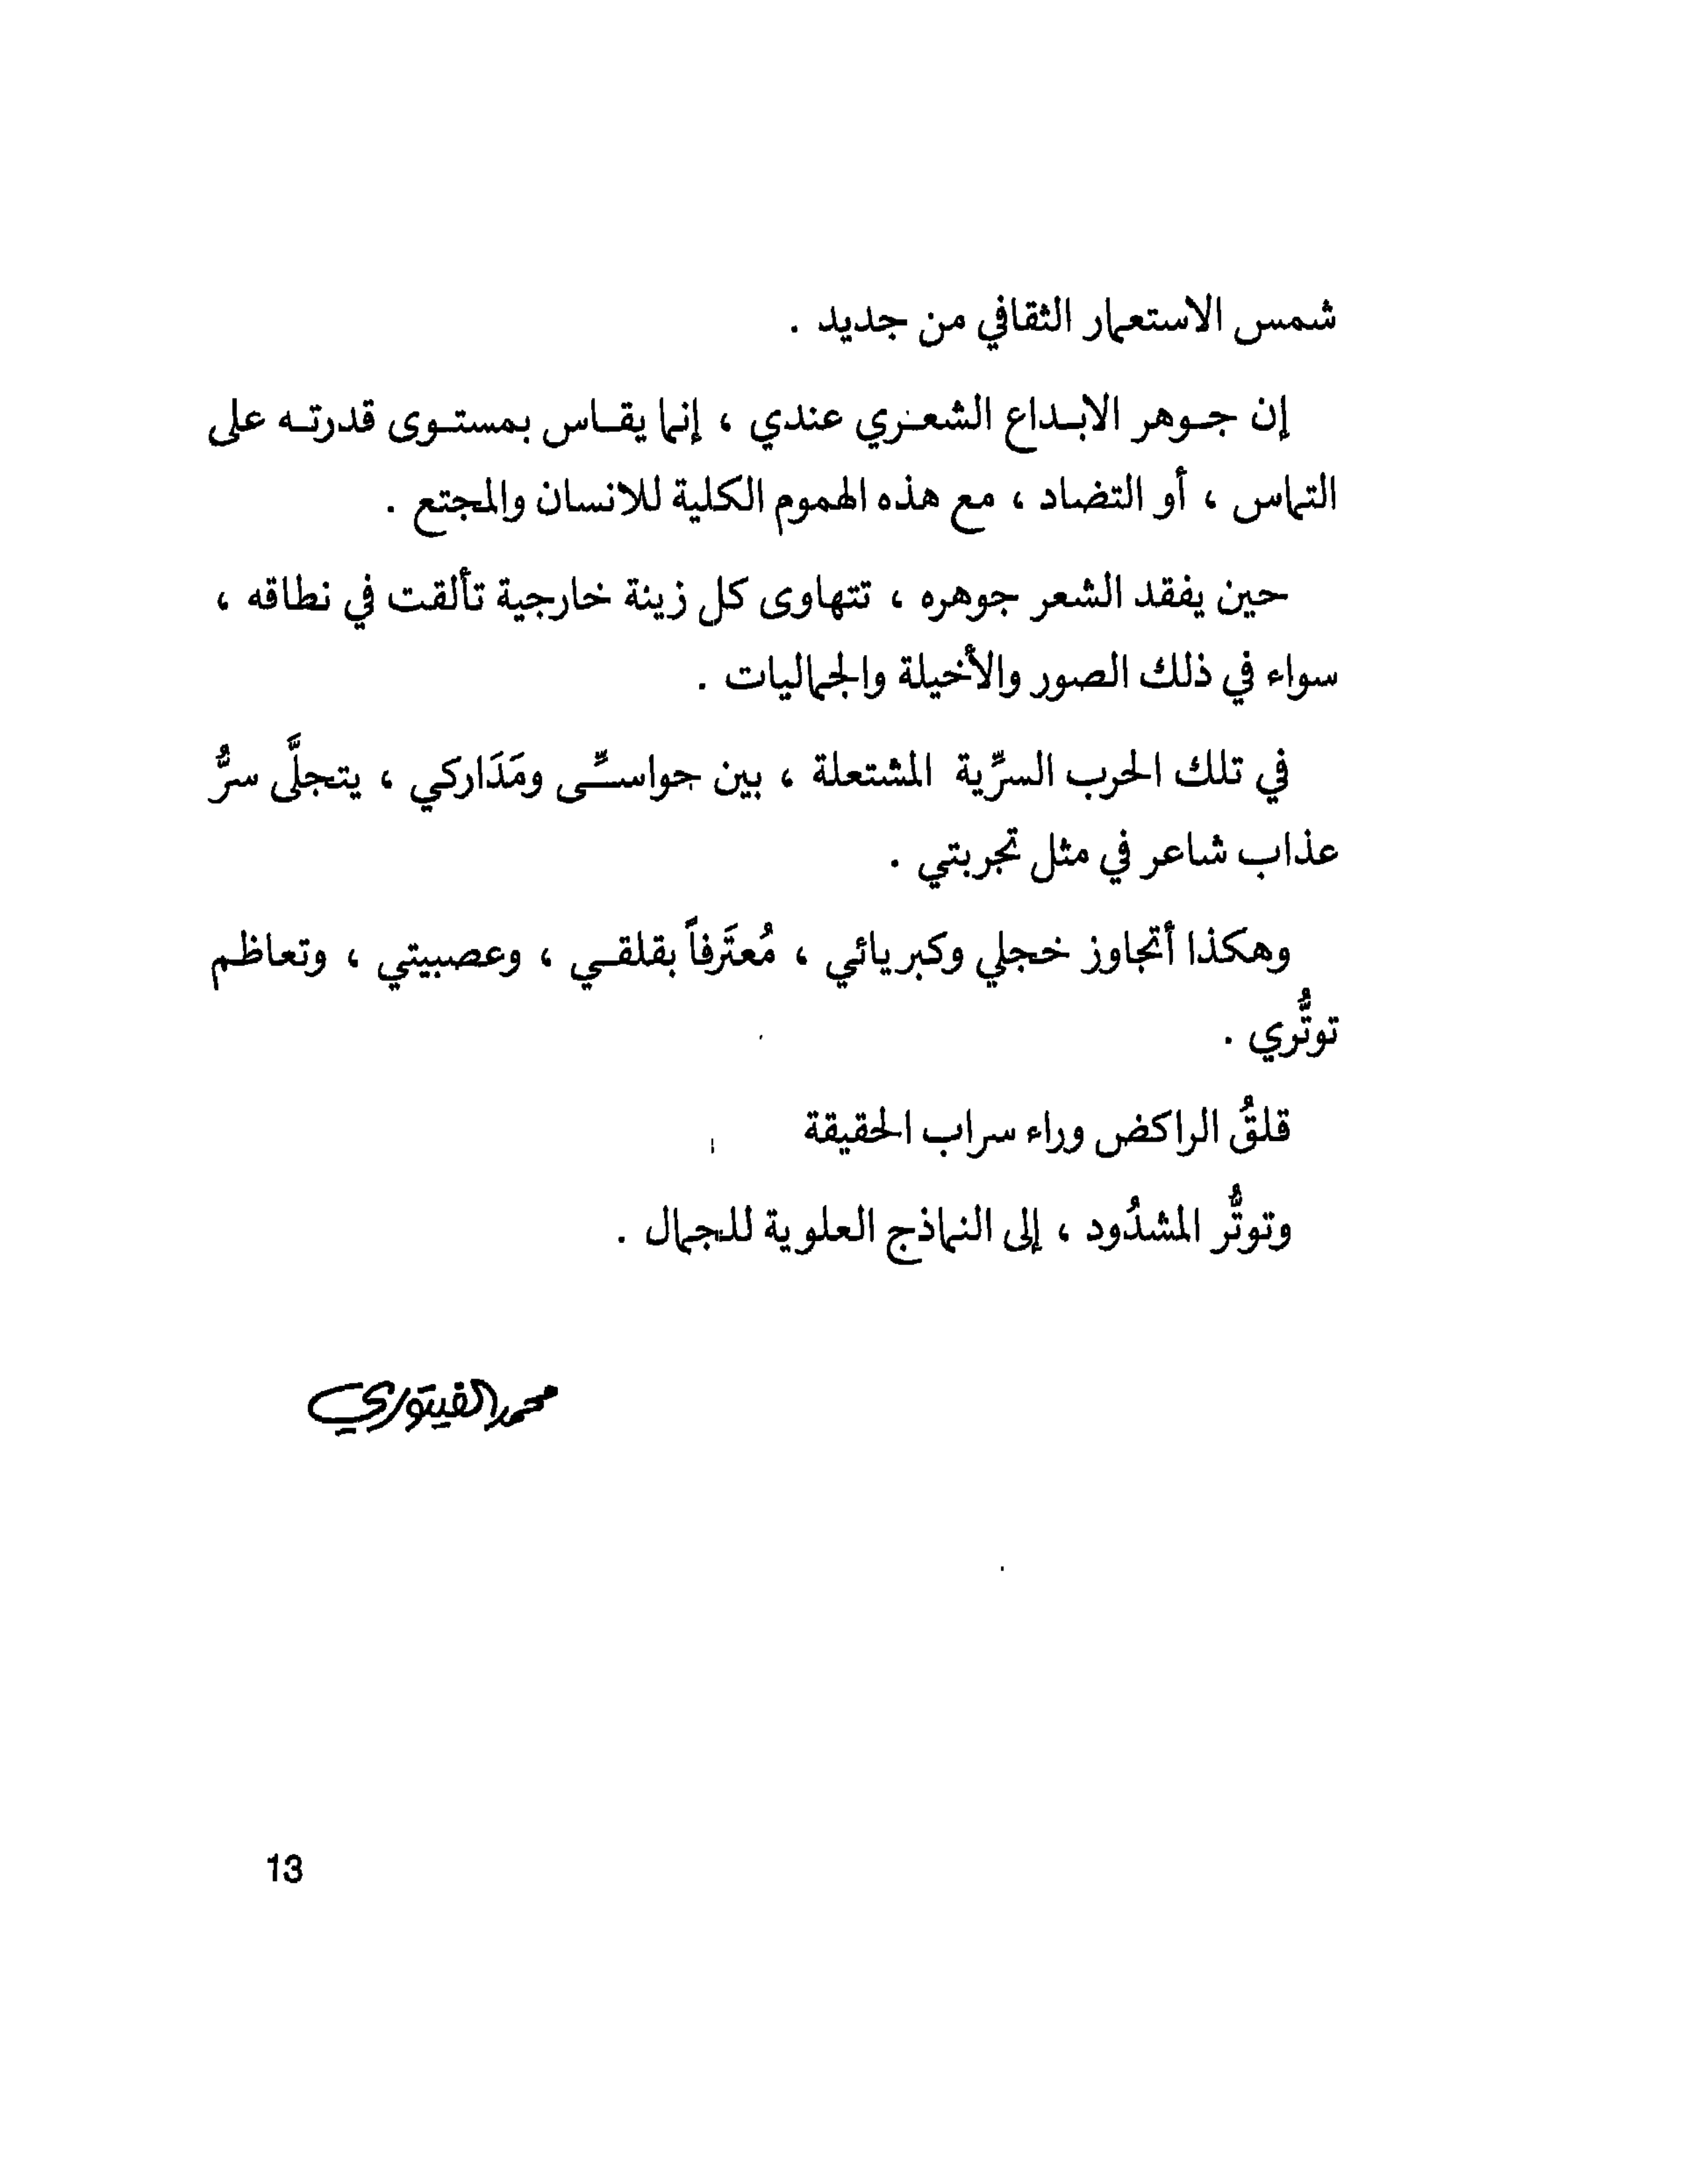 شمس الاستعمار الثقافي من جديد .
إن جـوهر الابـداع الشعـري عندي ، إنما يقـاس بمستـوى قدرتـه على
التماس ، أو التضاد ، مع هذه الهموم الكلية للانسان والمجتع .
حين يفقد الشعر جوهره ، تتهاوى كل زينة خارجية تألقت في نطاقه ،
سواء في ذلك الصور والأخيلة والجماليات .
في تلك الحرب السرِّية المشتعلة ، بين حواسـِّـى ومَدَاركي ، يتجلَّى سرُّ
عذاب شاعر في مثل تجربتي .
وهكذا أتجاوز خجلي وكبريائي ، مُعتَرفاً بقلقـي ، وعصبيتي ، وتعاظم
توتُّري .
قلقُ الراكض وراء سراب الحقيقة
وتوتُّر المشدُود ، إلى النماذج العلوية للجمال .
محمد الفيتوري
13